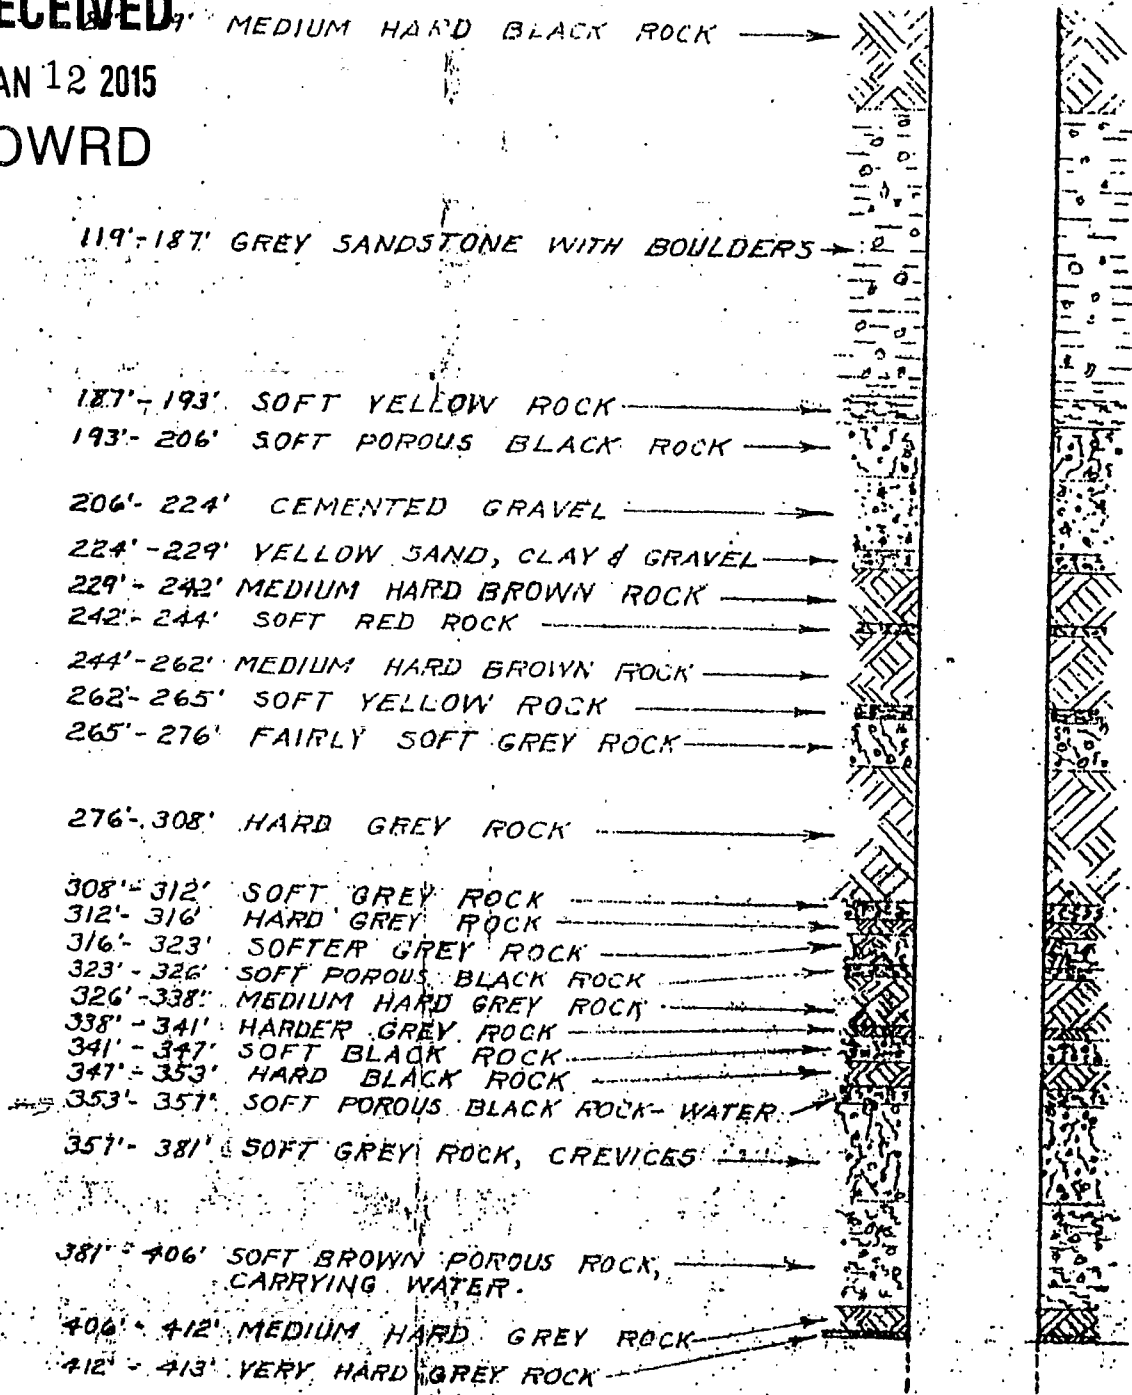 ECEIVED
9' MEDIUM HARD BLACK ROCK
AN 12 2015
OWRD
119'-187' GREY SANDSTONE WITH BOULDERS
187'-193' SOFT YELLOW ROCK
193'-206' SOFT POROUS BLACK ROCK
206'-224' CEMENTED GRAVEL
224'-229' YELLOW SAND, CLAY & GRAVEL
229'-242' MEDIUM HARD BROWN ROCK
242'-244' SOFT RED ROCK
244'-262' MEDIUM HARD BROWN ROCK
262'-265' SOFT YELLOW ROCK
265'-276' FAIRLY SOFT GREY ROCK
276'-308' HARD GREY ROCK
308'-312' SOFT GREY ROCK
312'-316' HARD GREY ROCK
316'-323' SOFTER GREY ROCK
323'-326' SOFT POROUS BLACK ROCK
326'-338' MEDIUM HARD GREY ROCK
338'-341' HARDER GREY ROCK
341'-347' SOFT BLACK ROCK
347'-353' HARD BLACK ROCK
353'-357' SOFT POROUS BLACK ROCK-WATER
357'-381' SOFT GREY ROCK, CREVICES
381'-406' SOFT BROWN POROUS ROCK,
CARRYING WATER.
406'-412' MEDIUM HARD GREY ROCK
412'-413' VERY HARD GREY ROCK